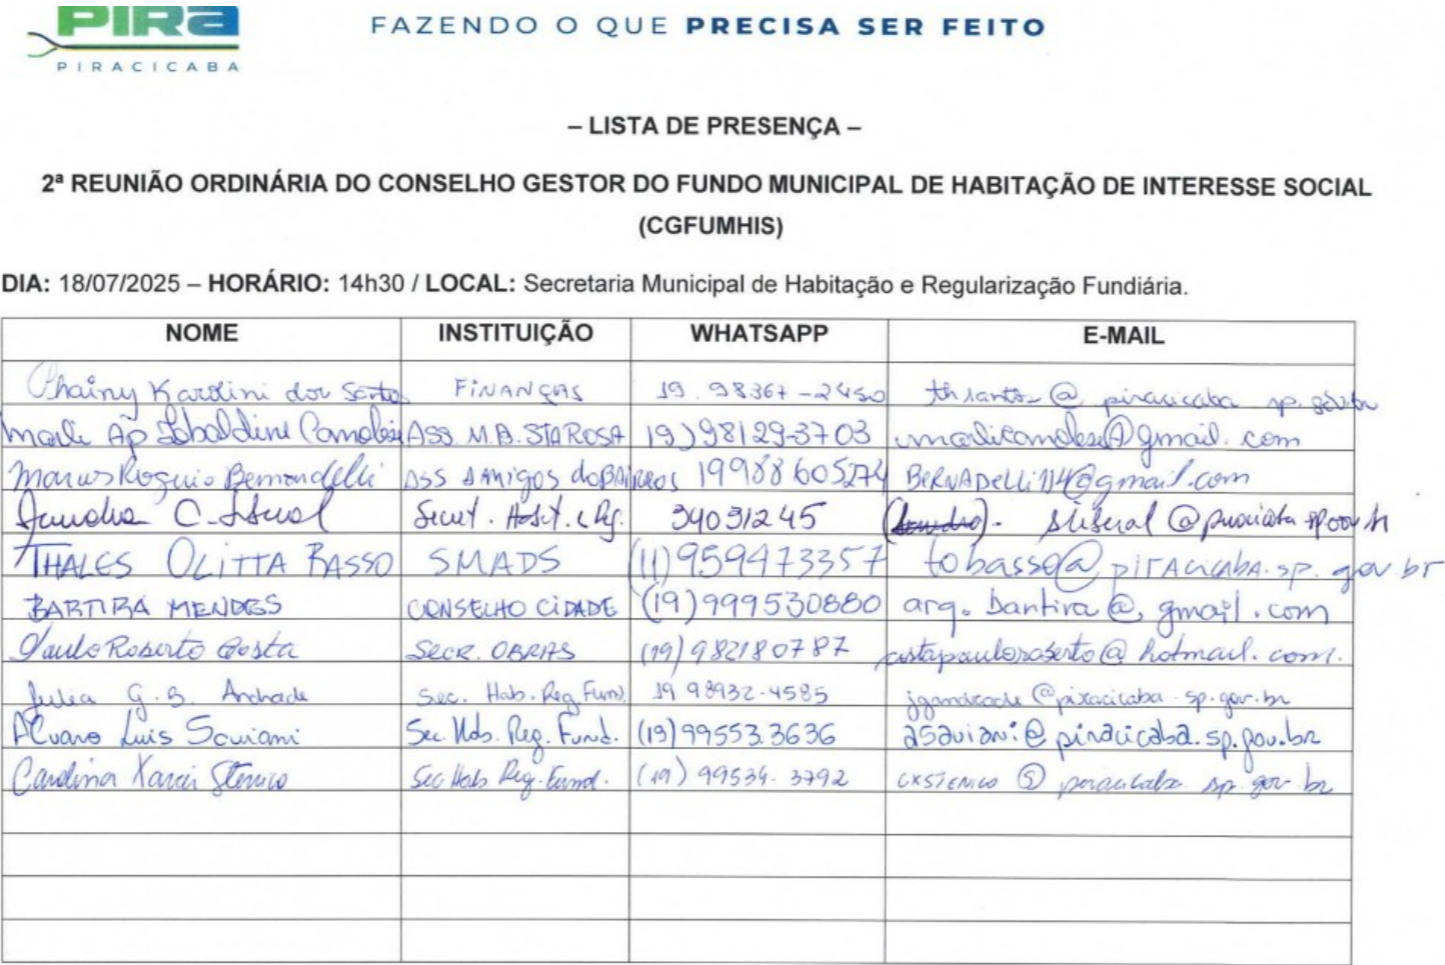 PIRA
PIRACICABA
FAZENDO O QUE PRECISA SER FEITO
– LISTA DE PRESENÇA –
2ª REUNIÃO ORDINÁRIA DO CONSELHO GESTOR DO FUNDO MUNICIPAL DE HABITAÇÃO DE INTERESSE SOCIAL
(CGFUMHIS)
DIA: 18/07/2025 – HORÁRIO: 14h30 / LOCAL: Secretaria Municipal de Habitação e Regularização Fundiária.
NOME INSTITUIÇÃO WHATSAPP E-MAIL
Thainy Karolini dos Santos FINANÇAS 19 98367-2450 thsantos@piracicaba.sp.gov.br
Marli Ap ASS M.B. STA ROSA 19)98129-3703 @gmail.com
Marcos ASS AMIGOS do BAIRROS 19988605274 BERNADELLi114@gmail.com
C. Secret. Habit. e Reg. 34031245 @piracicaba.sp.gov.br
THALES OLITTA BASSO SMADS (11)959473357 tobasso@piracicaba.sp.gov.br
BARTIRA MENDES CONSELHO CIDADE (19)999530880 arq.bartira@gmail.com
Paulo Roberto Costa SECR. OBRAS (19)982180787 costapauloroberto@hotmail.com.
Julia G. B. Andrade Sec. Hab. Reg Fund. 19 98932-4585 jgandrade@piracicaba.sp.gov.br
Alvaro Luis Saviani Sec Hab. Reg. Fund. (19)99553.3636 asaviani@piracicaba.sp.gov.br
Carolina Stenico Sec Hab Reg. Fund. (19) 99534-3792 cxstenico@piracicaba.sp.gov.br